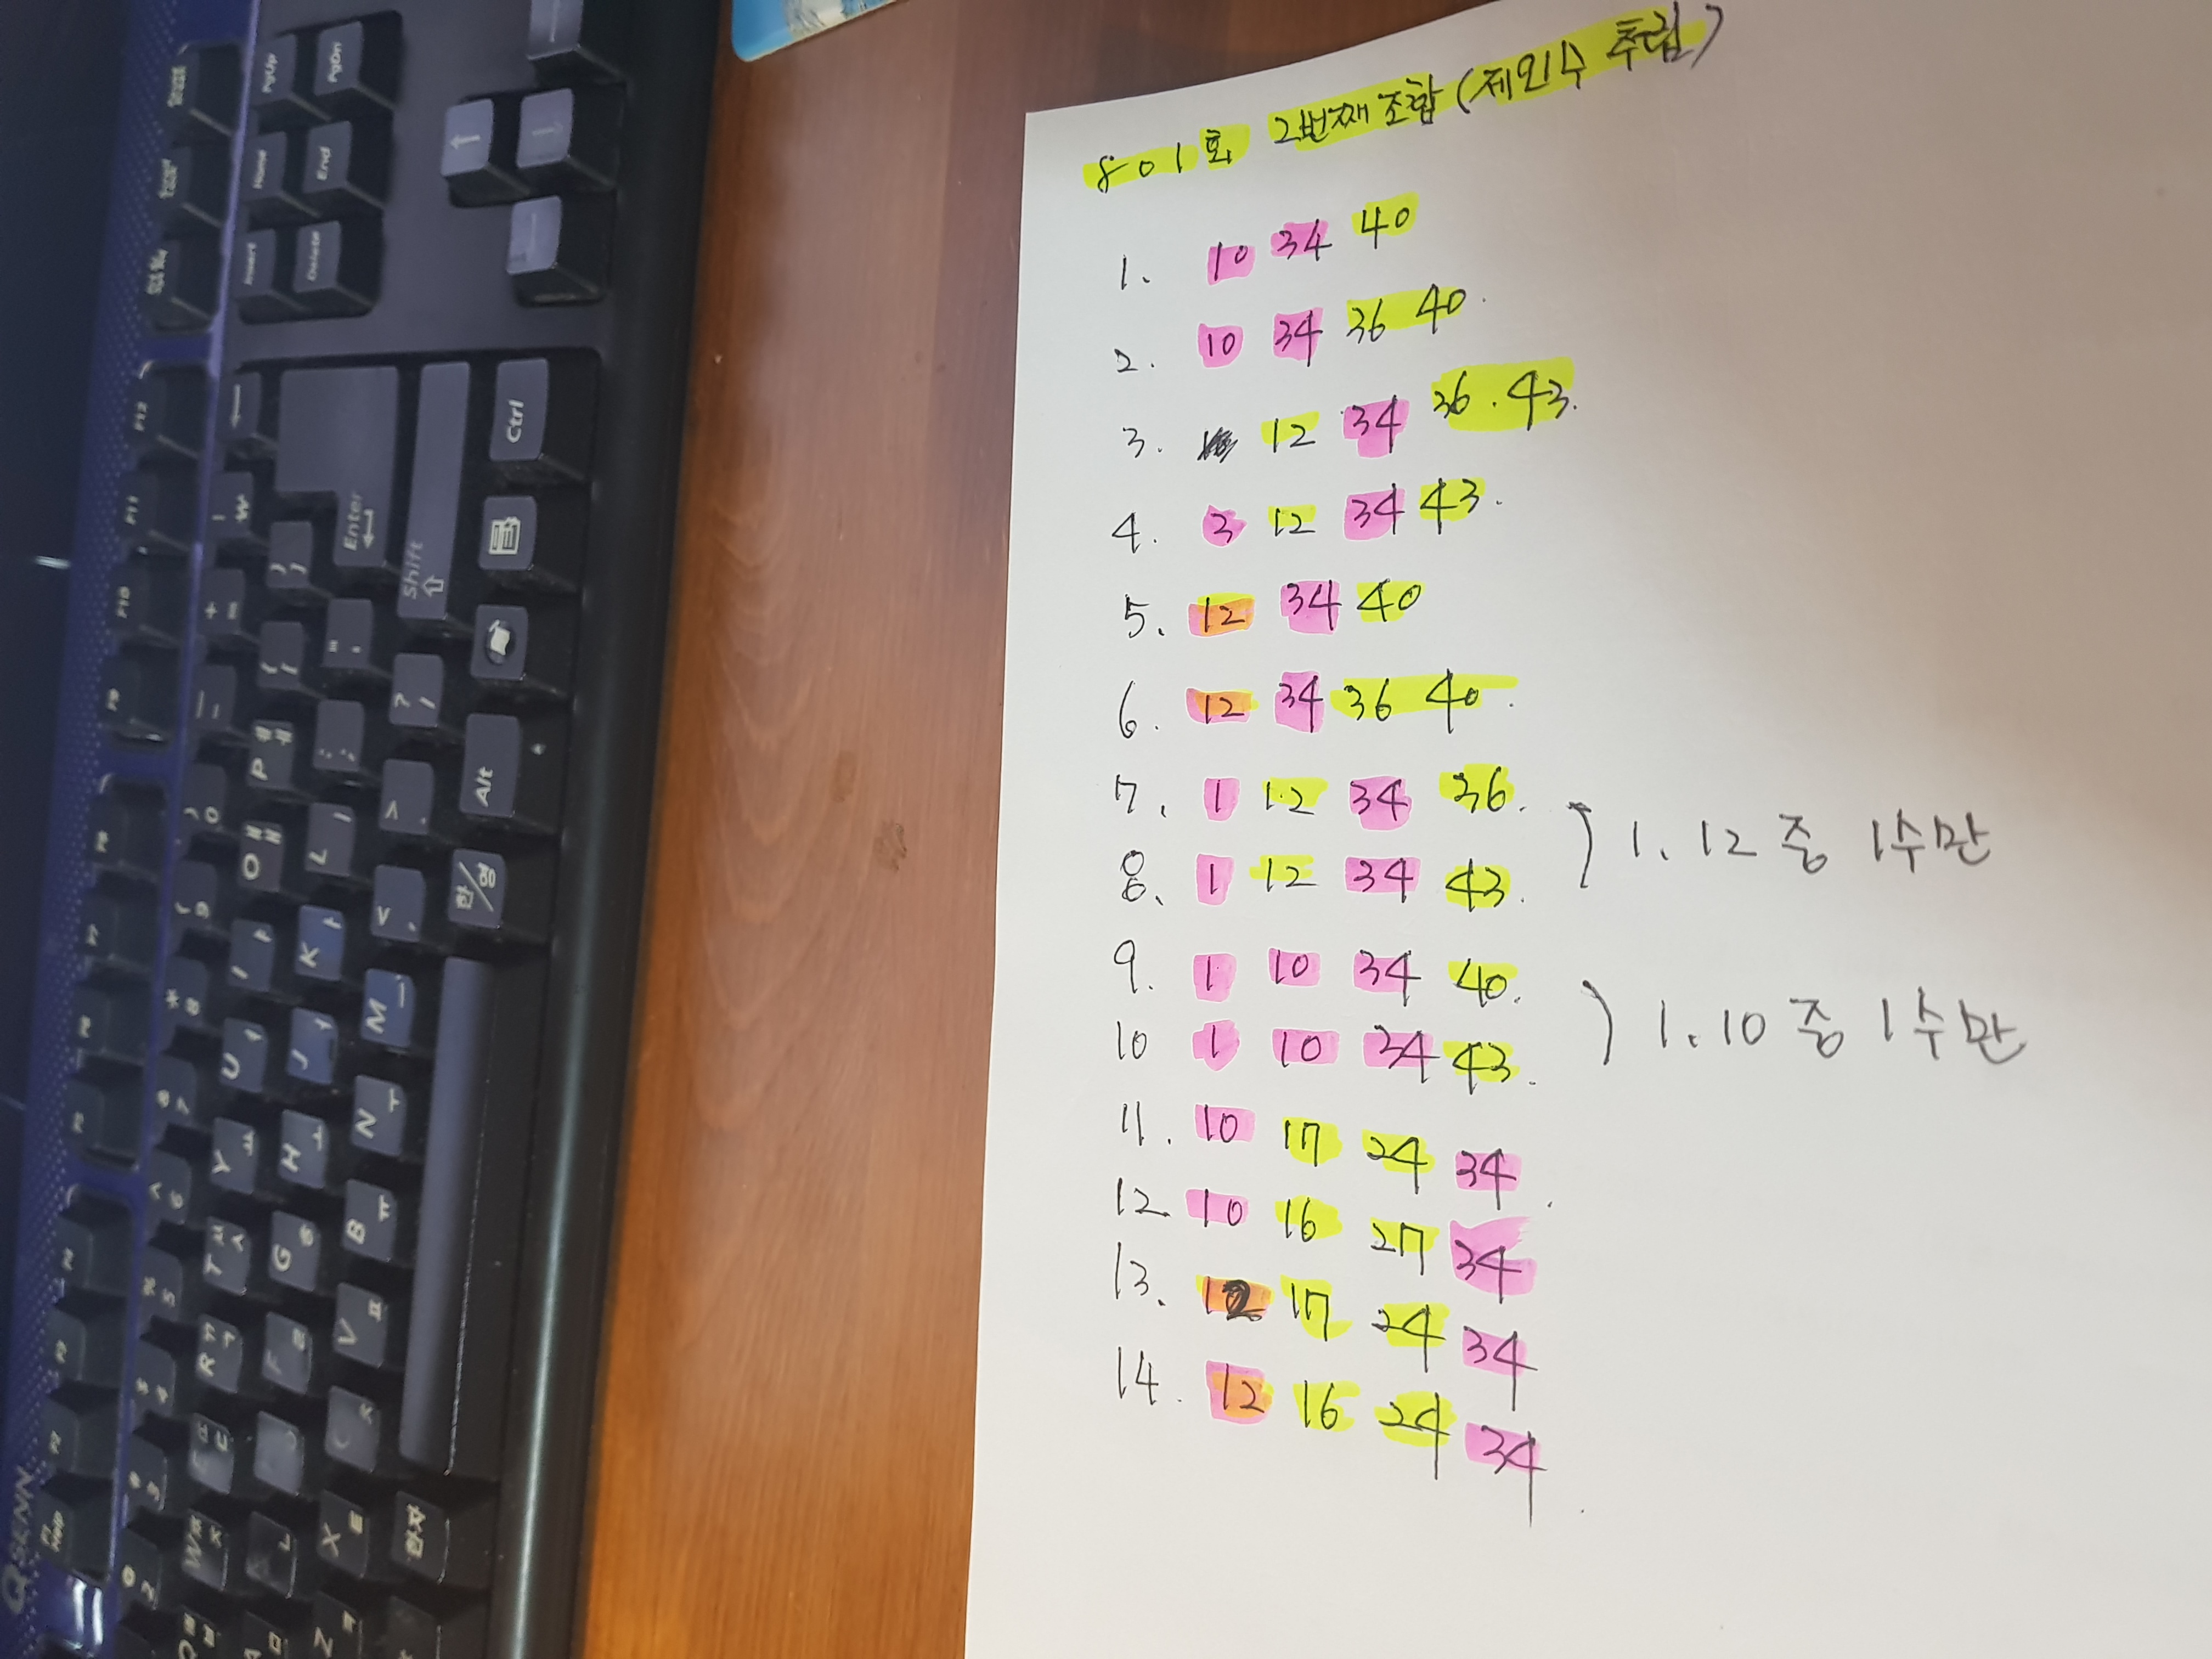 801회 2번째 조합 (제외수 추림)
1. 10 34 40
2. 10 34 36 40.
3. 12 34 36. 43.
4. 3 12 34 43.
5. 12 34 40
6. 12 34 36 40.
7. 1 12 34 36.
8. 1 12 34 43.
) 1. 12 중 1수만
9. 1 10 34 40.
10 1 10 34 43.
) 1. 10 중 1수만
11. 10 17 24 34.
12. 10 16 27 34
13. 12 17 24 34
14. 12 16 24 34
PgUp
PgDn
Home
End
Insert
Delete
F12
F11
F10
Enter
Shift
Ctrl
Alt
한/영
한자
P ㅔ ㅖ
O ㅐ ㅒ
L ㅣ
I ㅑ
K ㅏ
U ㅕ
J ㅓ
M ㅡ
Y ㅛ
H ㅗ
N ㅜ
T ㅅ ㅆ
G ㅎ
B ㅠ
R ㄱ ㄲ
F ㄹ
V ㅍ
W ㅈ ㅉ
X ㅌ
Z ㅋ
QSENN